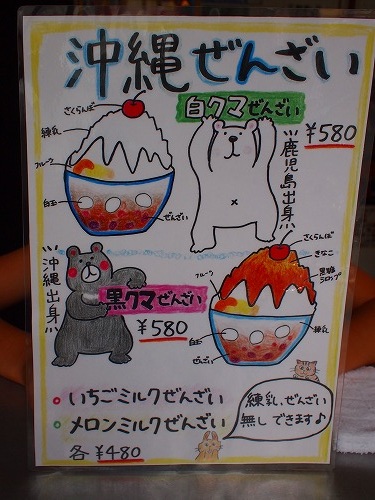 沖縄ぜんざい
白クマぜんざい
¥580
鹿児島出身
さくらんぼ
練乳
フルーツ
白玉
ぜんざい
沖縄出身
黒クマぜんざい
¥580
さくらんぼ
きなこ
黒糖シロップ
フルーツ
練乳
白玉
ぜんざい
いちごミルクぜんざい
メロンミルクぜんざい
各 ¥480
練乳、ぜんざい
無しできます♪